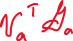 𝒩ₐᵀ 𝒢ₐ